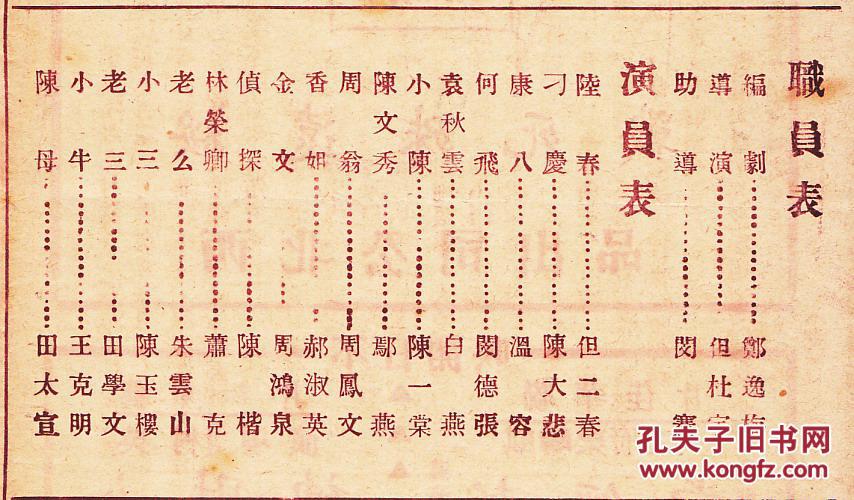 職員表
編劇⋯⋯鄭逸梅
導演⋯⋯但杜宇
助導⋯⋯閔賽
演員表
陸春⋯⋯但二春
刁慶⋯⋯陳大悲
康八⋯⋯溫容
何飛⋯⋯閔德張
袁秋雲⋯⋯白燕
小陳⋯⋯陳一棠
陳文秀⋯⋯鄢燕
周翁⋯⋯周鳳文
香如⋯⋯郝淑英
金文⋯⋯周鴻泉
偵探⋯⋯陳楷
林榮卿⋯⋯蕭克
老么⋯⋯朱雲山
小三⋯⋯陳玉樓
老三⋯⋯田學文
小牛⋯⋯王克明
陳母⋯⋯田太宣
孔夫子旧书网
www.kongfz.com